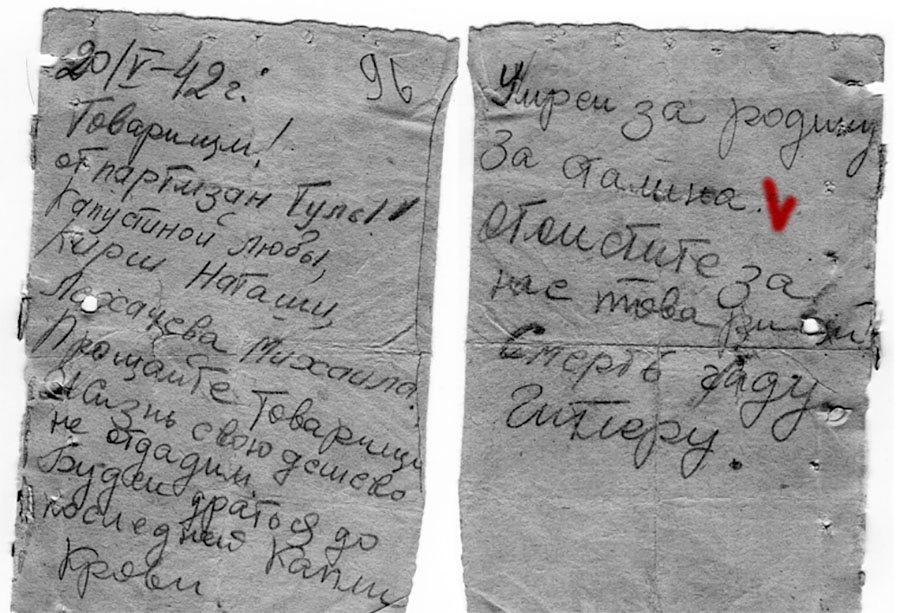 20/V-42 г. 96
Товарищи!
от партизан Тулы!
Капустиной Любы,
Кирш Наташи,
Лихачева Михаила.
Прощайте Товарищи
Жизнь свою дешево
не отдадим.
Будем драться до
последней Капли
Крови.
Умрем за родину
За Сталина.
отомстите за
нас товарищи!
Смерть гаду
Гитлеру.